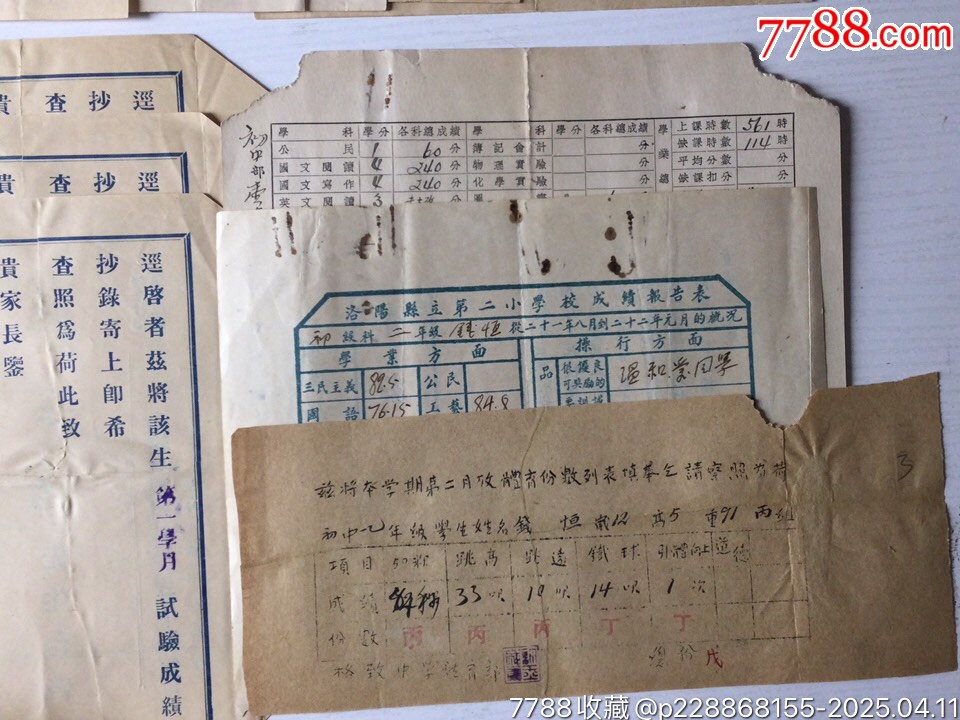 7788.com
貴 查 抄 逕
貴 查 抄 逕
逕啓者茲將該生第一學月試驗成績
抄錄寄上卽希
查照爲荷此致
貴家長鑒
初中部
學科 學分 各科總成績 學科 學分 各科總成績 學業總 上課時數 561 時
公民 1 60分 簿記會計 分 缺課時數 114 時
國文閱讀 4 240分 物理實驗 分 平均分數 分
國文寫作 4 240分 化學實驗 分 缺課扣分 分
英文閱讀 3
洛陽縣立第二小學校成績報告表
初級科二年級 錢恒 從二十一年八月到二十二年元月的概況
學業方面 操行方面
三民主義 82.5 公民 品 很優良可奬勵的 溫和愛同學
國語 76.15 工藝 84.8
3
茲將本學期第二月份體育份數列表填奉乞請察照爲荷
初中一年級學生姓名錢恒歲12高5重91丙組
項目 50米 跳高 跳遠 鐵球 引體向上 道德
成績 33吋 10呎 14呎 1次
份數 丙 丙 丙 丁 丁
格致中學體育部 總份 戊
7788收藏@p228868155-2025.04.11